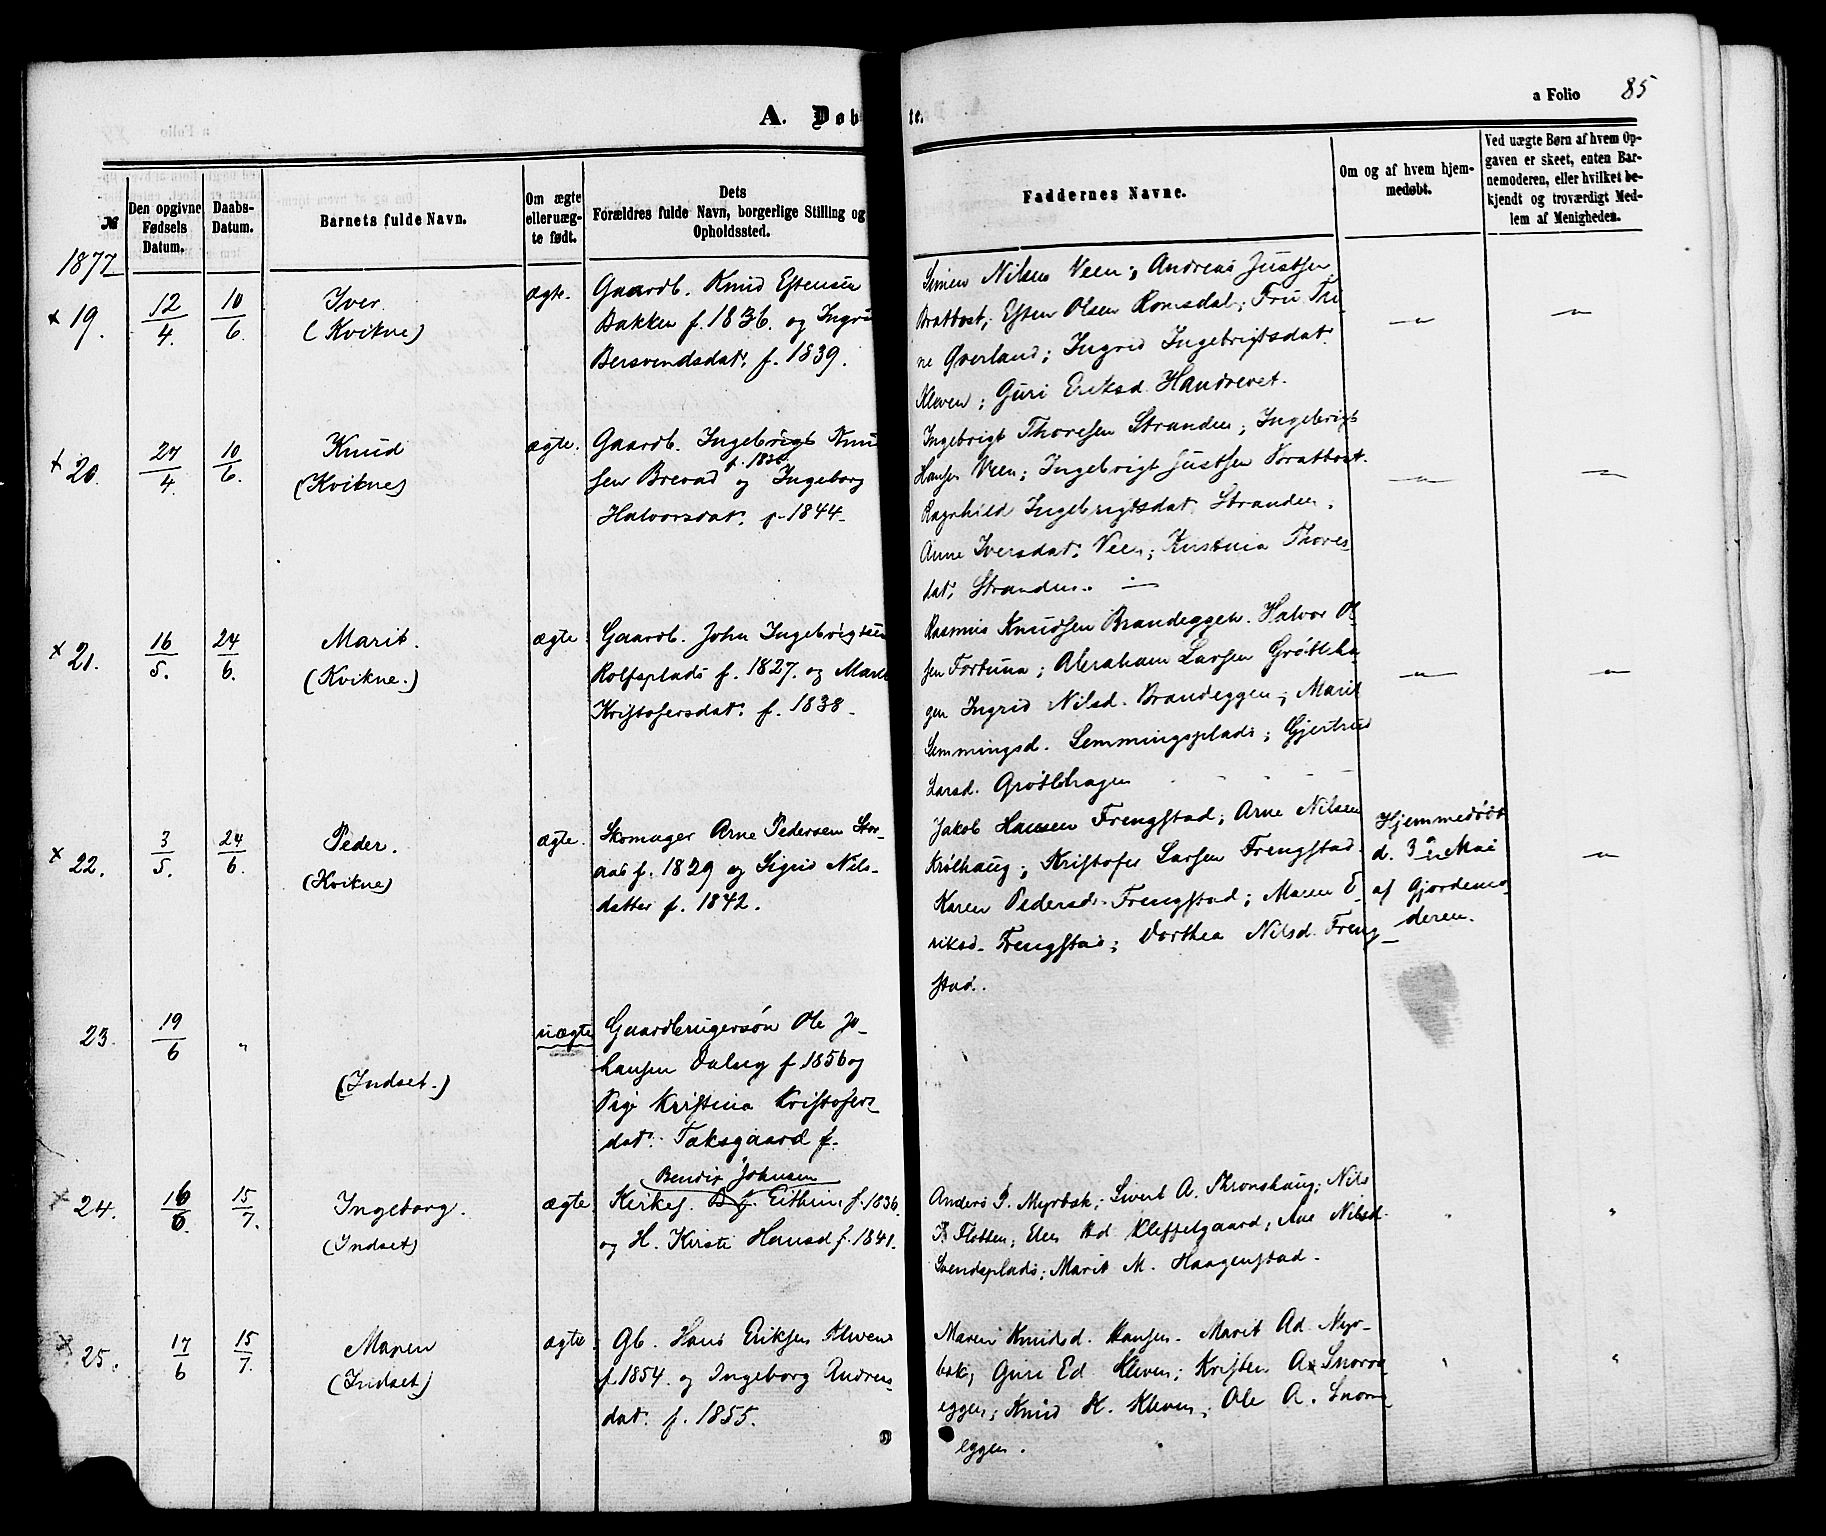 A. Døbte.
a Folio 85
№
Den opgivne Fødsels Datum.
Daabs-Datum.
Barnets fulde Navn.
Om ægte eller uægte født.
Dets Forældres fulde Navn, borgerlige Stilling og Opholdssted.
Faddernes Navne.
Om og af hvem hjemmedøbt.
Ved uægte Børn af hvem Opgaven er skeet, enten Barnemoderen, eller hvilket bekjendt og troværdigt Medlem af Menigheden.
1877
x 19. 12/4. 10/6. Iver. (Kvikne) ægte.
Gaardb. Knud Estensen
Bakken f. 1836. og Ingri
Bersvendsdat. f. 1839.
Simen Nilsen Veen; Andreas Justsen
Brattost; Esten Olsen Romsdal; Fru Tri
ne Qverland; Ingrid Ingebrigtsdat.
Kleven; Guri Eriksd. Handveret.
x 20. 24/4. 10/6. Knud (Kvikne) ægte.
Gaardb. Ingebrigt Knud
sen Brevad f. 1836 og Ingeborg
Halvorsdat. f. 1844.
Ingebrigt Thoresen Stranden; Ingebrigt
Hansen Veen; Ingebrigt Justsen Brattost.
Ragnhild Ingebrigtsdat. Stranden;
Anne Iversdat. Veen; Kristina Thores
dat. Stranden.
x 21. 16/5. 24/6. Marit. (Kvikne.) ægte
Gaardb. John Ingebrigtsen
Rolfsplads f. 1827. og Marit
Kristofersdat. f. 1838.
Rasmus Knudsen Brandeggen. Halvor Ol
sen Fortuna; Abraham Larsen Grøttha
gen Ingrid Nilsd. Brandeggen; Marit
Semmingsd. Semmingsplads; Gjertrud
Larsd. Grøtthagen
x 22. 3/5. 24/6. Peder. (Kvikne) ægte.
Skomager Arne Pedersen Stor-
aas f. 1829 og Sigrid Nils-
datter f. 1842.
Jakob Hansen Frengstad; Arne Nilsen
Krølhaug; Kristofer Larsen Frengstad.
Karen Pedersd. Frengstad; Maren E-
riksd. Frengstad; Dorthea Nilsd. Freng-
stad.
Hjemmedøbt
d. 3 Mai
af Gjordemo-
deren.
23. 19/6 " (Indset.) uægte
Gaardbrugersøn Ole Jo-
hansen Dalseg f 1856 og
Pige Kristina Kristofers-
dat. Taksgaard f.
x 24. 16/6. 15/7. Ingeborg. (Indset) ægte
Bendix Johnsen
Kirkes. Eithun f. 1836.
og H. Kirsti Hansd f. 1841.
Anders P. Myrbak; Sivert A. Thronshaug; Nils
P. Flotten; Elen Kleffelgaard; Ane Nilsd.
Svendsplads; Marit M. Haagenstad.
x 25. 17/6 15/7. Maren (Indset) ægte
Gb. Hans Eriksen Kleven
f. 1854. og Ingeborg Anders-
dat. f. 1855.
Maren Knudsd. Hansen. Marit Ad. Myr-
bak; Guri Ed Kleven; Kristen A. Snoroe
eggen; Knud H. Kleven; Ole A. Snoro
eggen.